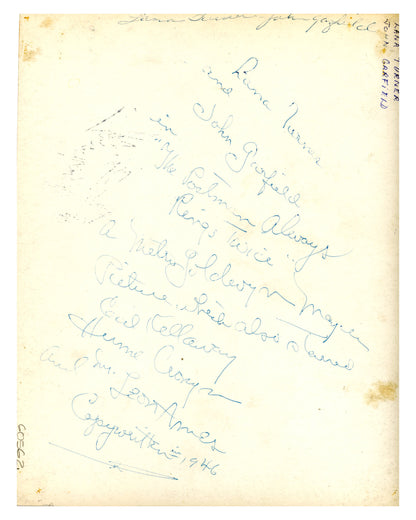 Lana Turner - John Garfield
LANA TURNER
JOHN GARFIELD
Lana Turner
and
John Garfield
in
"The Postman Always
Rings Twice"
a Metro Goldwyn Mayer
Picture which also starred
Cecil Kellaway
Hume Cronyn
and Mr. Leon Ames
Copywritten 1946